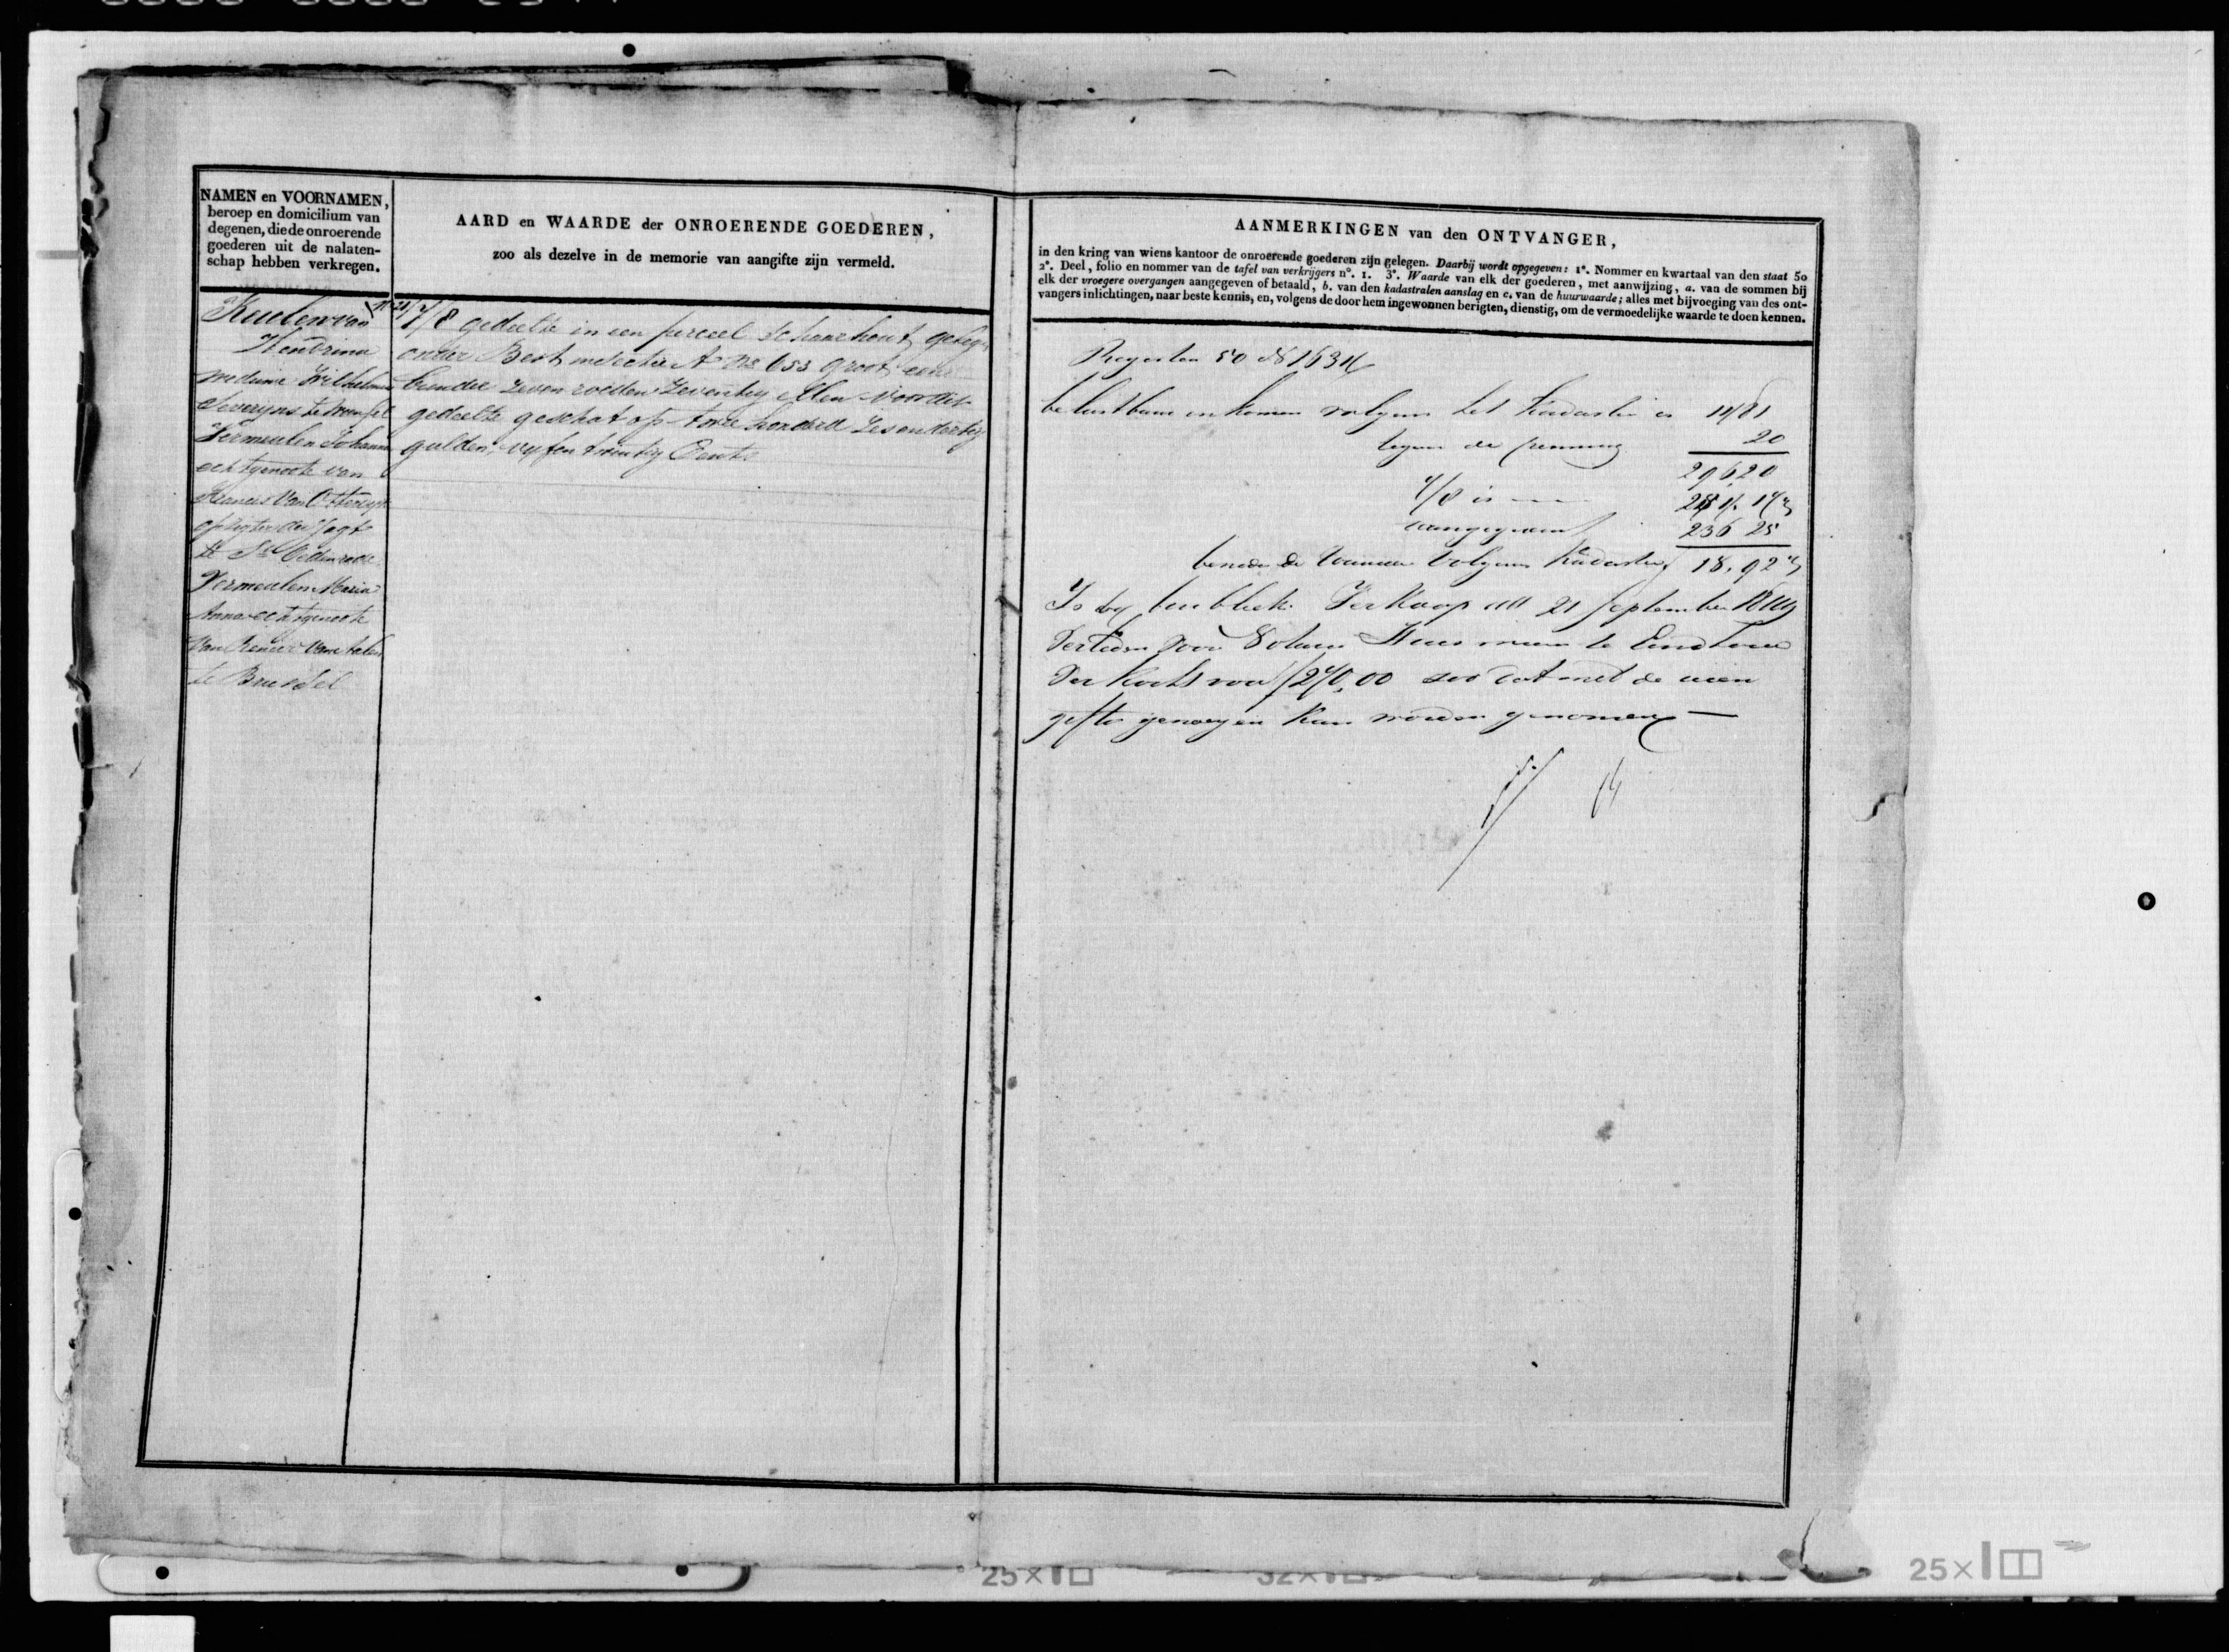 NAMEN en VOORNAMEN,
beroep en domicilium van
degenen, die de onroerende
goederen uit de nalaten-
schap hebben verkregen.
AARD en WAARDE der ONROERENDE GOEDEREN,
zoo als dezelve in de memorie van aangifte zijn vermeld.
Keulen van
Hendrina
weduwe Wilhelmus
Severijns te Woensel
Vermeulen Johanna
echtgenoote van
Francis Van Otterdijk
opzigter der Jagt
te St Oedenrode
Vermeulen Maria
Anna echtgenoote
van Renier van
te Brussel
7/8 gedeelte in een perceel Schaarhout gelegen
onder Best in sectie A No 653 groot een
bunder zeven roeden zeventig ellen voor dit
gedeelte geschat op twee honderd zes en dertig
gulden, vyf en twintig Cents
AANMERKINGEN van den ONTVANGER,
in den kring van wiens kantoor de onroerende goederen zijn gelegen. Daarbij wordt opgegeven: 1°. Nommer en kwartaal van den staat 50
2°. Deel, folio en nommer van de tafel van verkrijgers n°. 1. 3°. Waarde van elk der goederen, met aanwijzing, a. van de sommen bij
elk der vroegere overgangen aangegeven of betaald, b. van den kadastralen aanslag en c. van de huurwaarde; alles met bijvoeging van des ont-
vangers inlichtingen, naar beste kennis, en, volgens de door hem ingewonnen berigten, dienstig, om de vermoedelijke waarde te doen kennen.
Register 50 N
belastbaar inkomen volgens het kadaster is 1481
tegen de penning 20
296,20
7/8 is
aangegeven 236 25
beneden de waarde volgens Kadaster 18.92
Is by publieke Verkoop dd 21 September
verleden voor Notaris te Eindhoven
verkocht voor f 270,00 zoo dat met de aan
gifte genoegen kan worden genomen
25×
32×
25×